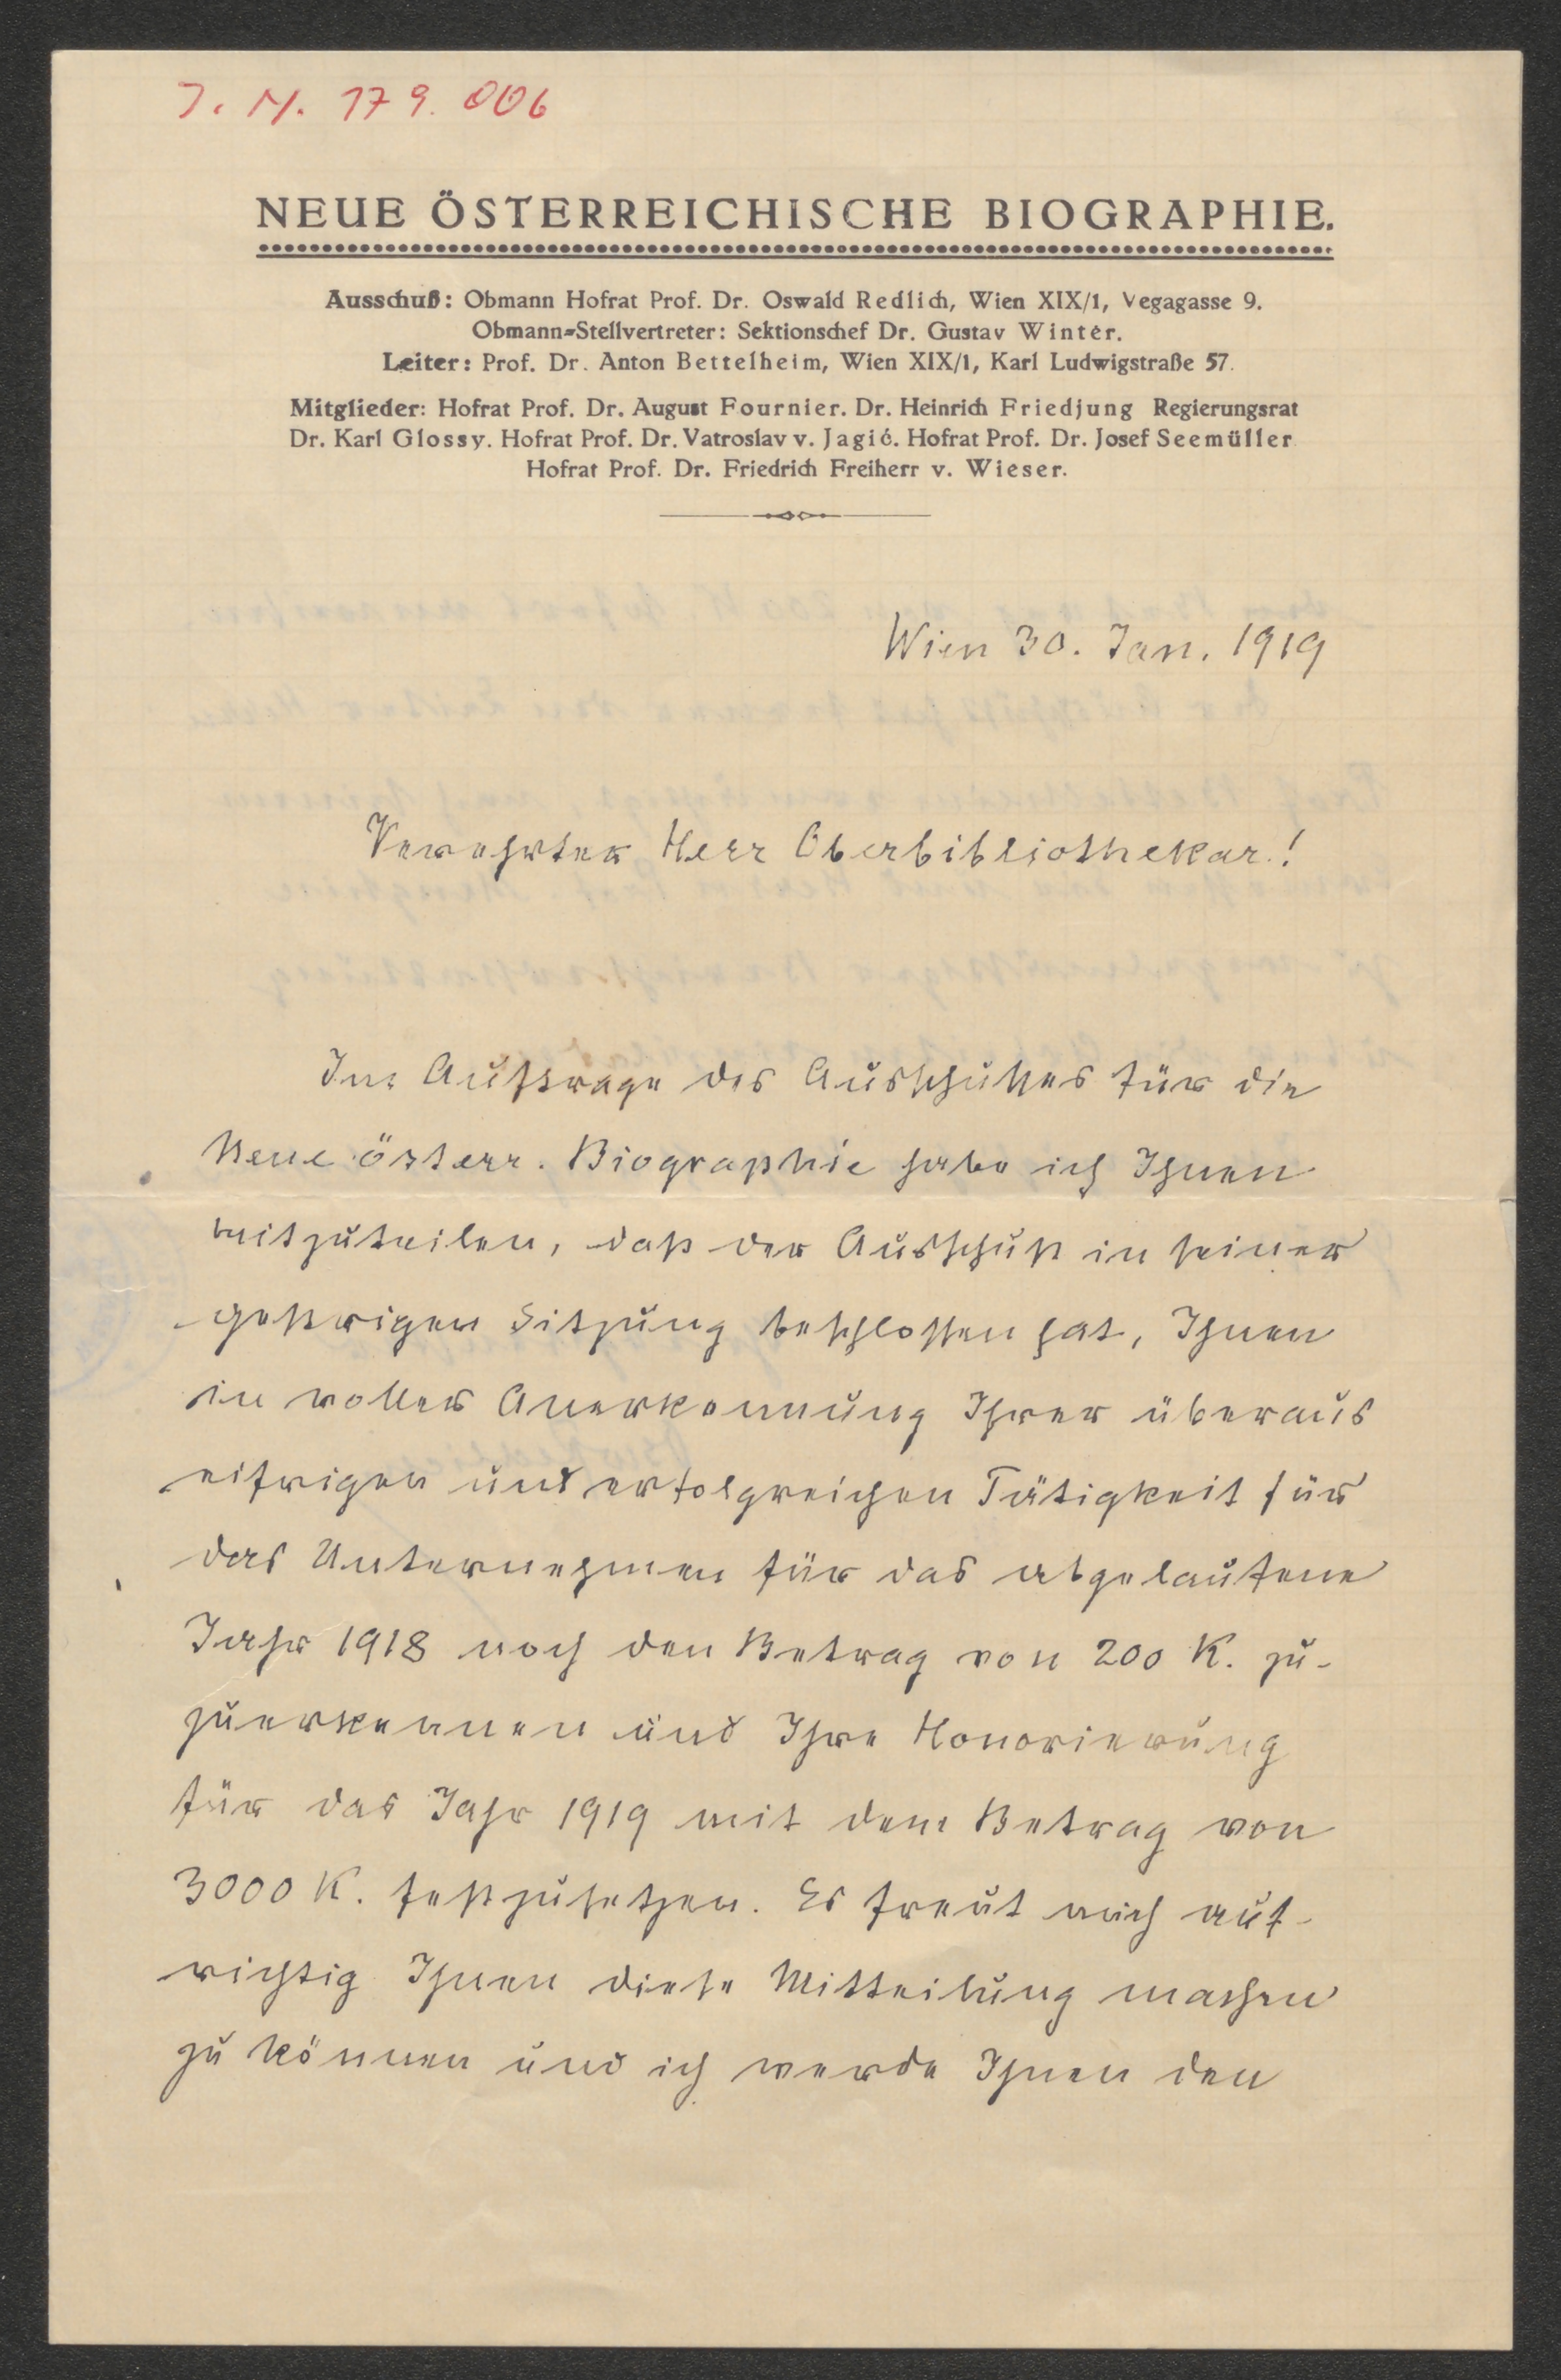 I. N. 179.006
NEUE ÖSTERREICHISCHE BIOGRAPHIE.
Ausschuß: Obmann Hofrat Prof. Dr. Oswald Redlich, Wien XIX/1, Vegagasse 9.
Obmann=Stellvertreter: Sektionschef Dr. Gustav Winter.
Leiter: Prof. Dr. Anton Bettelheim, Wien XIX/1, Karl Ludwigstraße 57.
Mitglieder: Hofrat Prof. Dr. August Fournier. Dr. Heinrich Friedjung Regierungsrat
Dr. Karl Glossy. Hofrat Prof. Dr. Vatroslav v. Jagić. Hofrat Prof. Dr. Josef Seemüller
Hofrat Prof. Dr. Friedrich Freiherr v. Wieser.
Wien 30. Jan. 1919
Verehrter Herr Oberbibliothekar!
Im Auftrage des Ausschusses für die
Neue österr. Biographie habe ich Ihnen
mitzuteilen, daß der Ausschuß in seiner
gestrigen Sitzung beschlossen hat, Ihnen
in voller Anerkennung Ihrer überaus
eifrigen und erfolgreichen Tätigkeit für
das Unternehmen für das abgelaufene
Jahr 1918 noch den Betrag von 200 K. zu-
zuerkennen und Ihre Honorierung
für das Jahr 1919 mit dem Betrag von
3000 K. festzusetzen. Es freut mich auf-
richtig Ihnen diese Mitteilung machen
zu können und ich werde Ihnen den